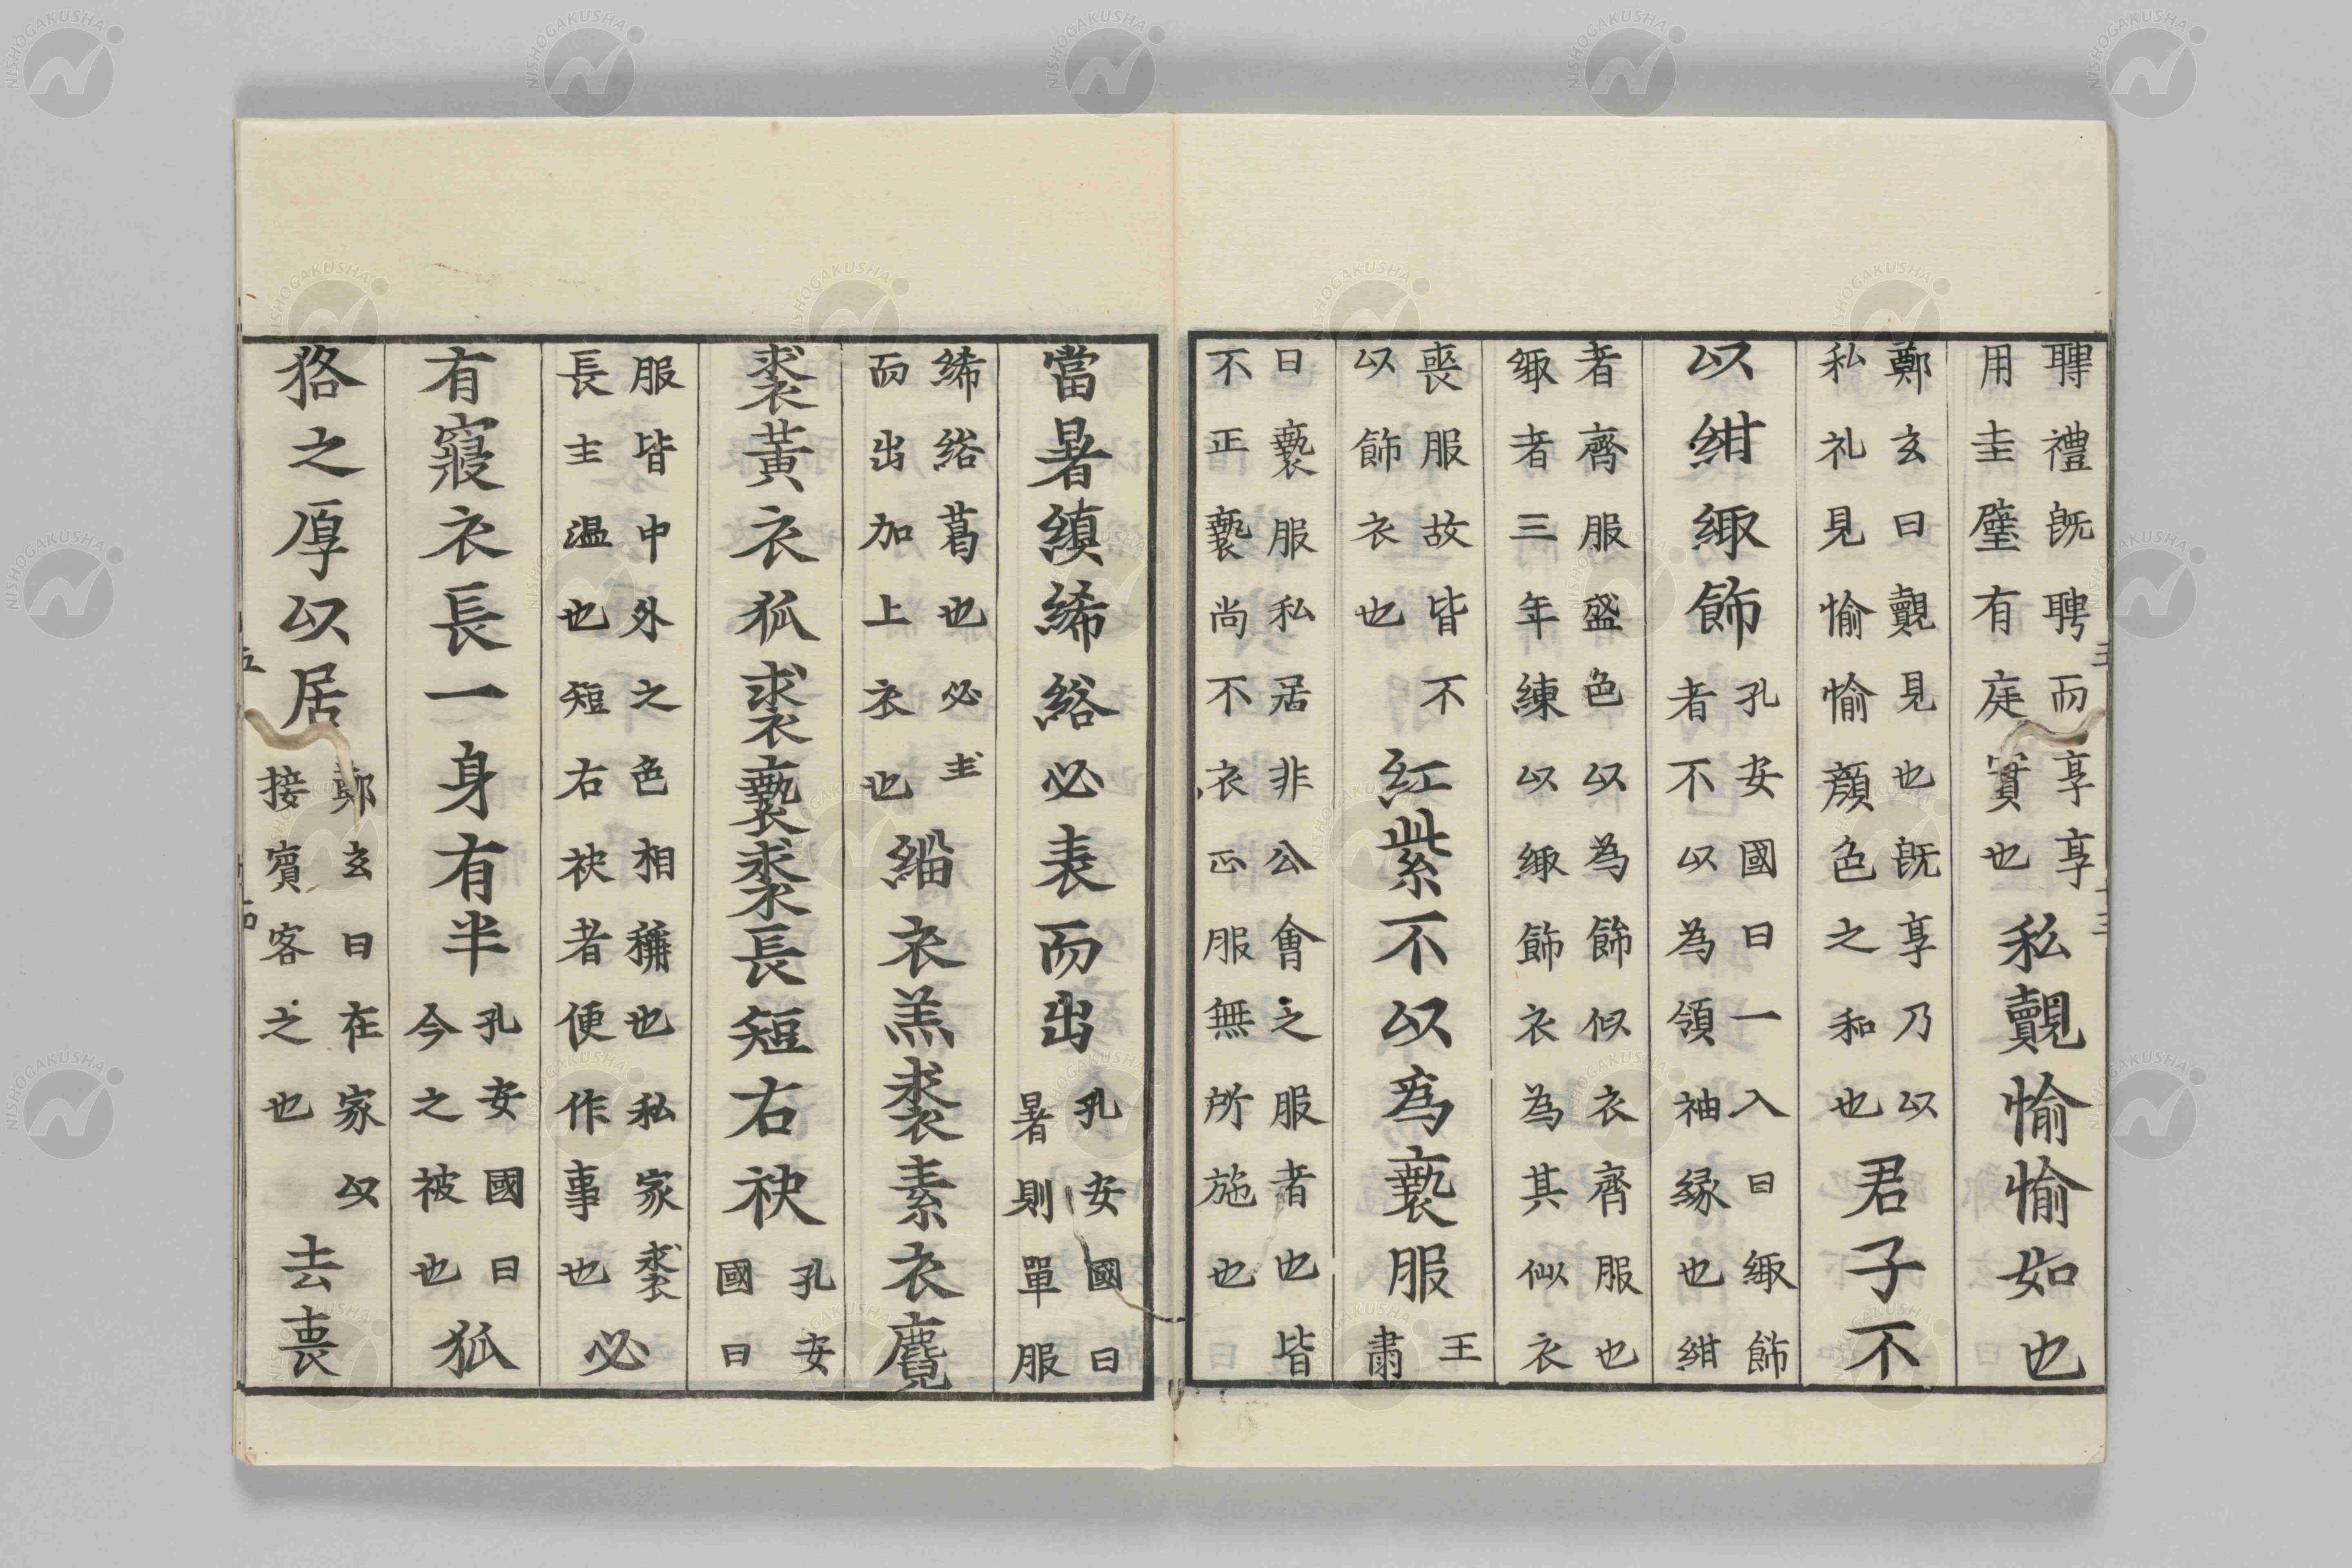 聘禮既聘而享享
用圭璧有庭實也
私覿愉愉如也
鄭玄曰覿見也既享乃以
私礼見愉愉顔色之和也
君子不
以紺緅飾
孔安國曰一入曰緅飾
者不以為領袖縁也紺
者齊服盛色以為飾似衣齊服也
緅者三年練以緅飾衣為其似衣
喪服故皆不
以飾衣也
紅紫不以為褻服
王
肅
曰褻服私居非公會之服者也皆
不正褻尚不衣正服無所施也
當暑縝絺綌必表而出
孔安國曰
暑則單服
絺綌葛也必表
而出加上衣也
緇衣羔裘素衣麑
裘黃衣狐裘褻裘長短右袂
孔安
國曰
服皆中外之色相稱也私家裘
長主温也短右袂者便作事也
必
有寢衣長一身有半
孔安國曰
今之被也
狐
狢之厚以居
鄭玄曰在家以
接賓客之也
去喪